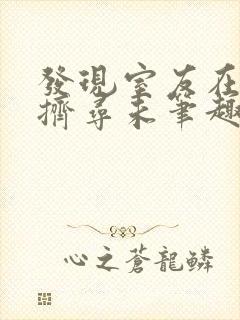 發現室友在
擠尋未筆趣
心之蒼龍鱗